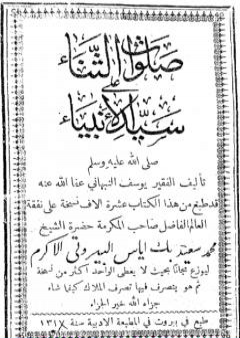 صلوات الثناء
على
سيد الأنبياء
صلى الله عليه وسلم
تأليف الفقير يوسف النبهاني عفا الله عنه
قد طبع من هذا الكتاب عشرة الاف نسخة على نفقة
العالم الفاضل صاحب المكرمة حضرة الشيخ
محمد سعيد بك اياس البيروتي الاكرم
ليوزع مجانًا بحيث لا يعطى الواحد أكثر من نسخة
ثم هو يتصرف فيها تصرف الملاك كيفما شاء
جزاه الله خير الجزاء
طبع في بيروت في المطبعة الادبية سنة ١٣١٧